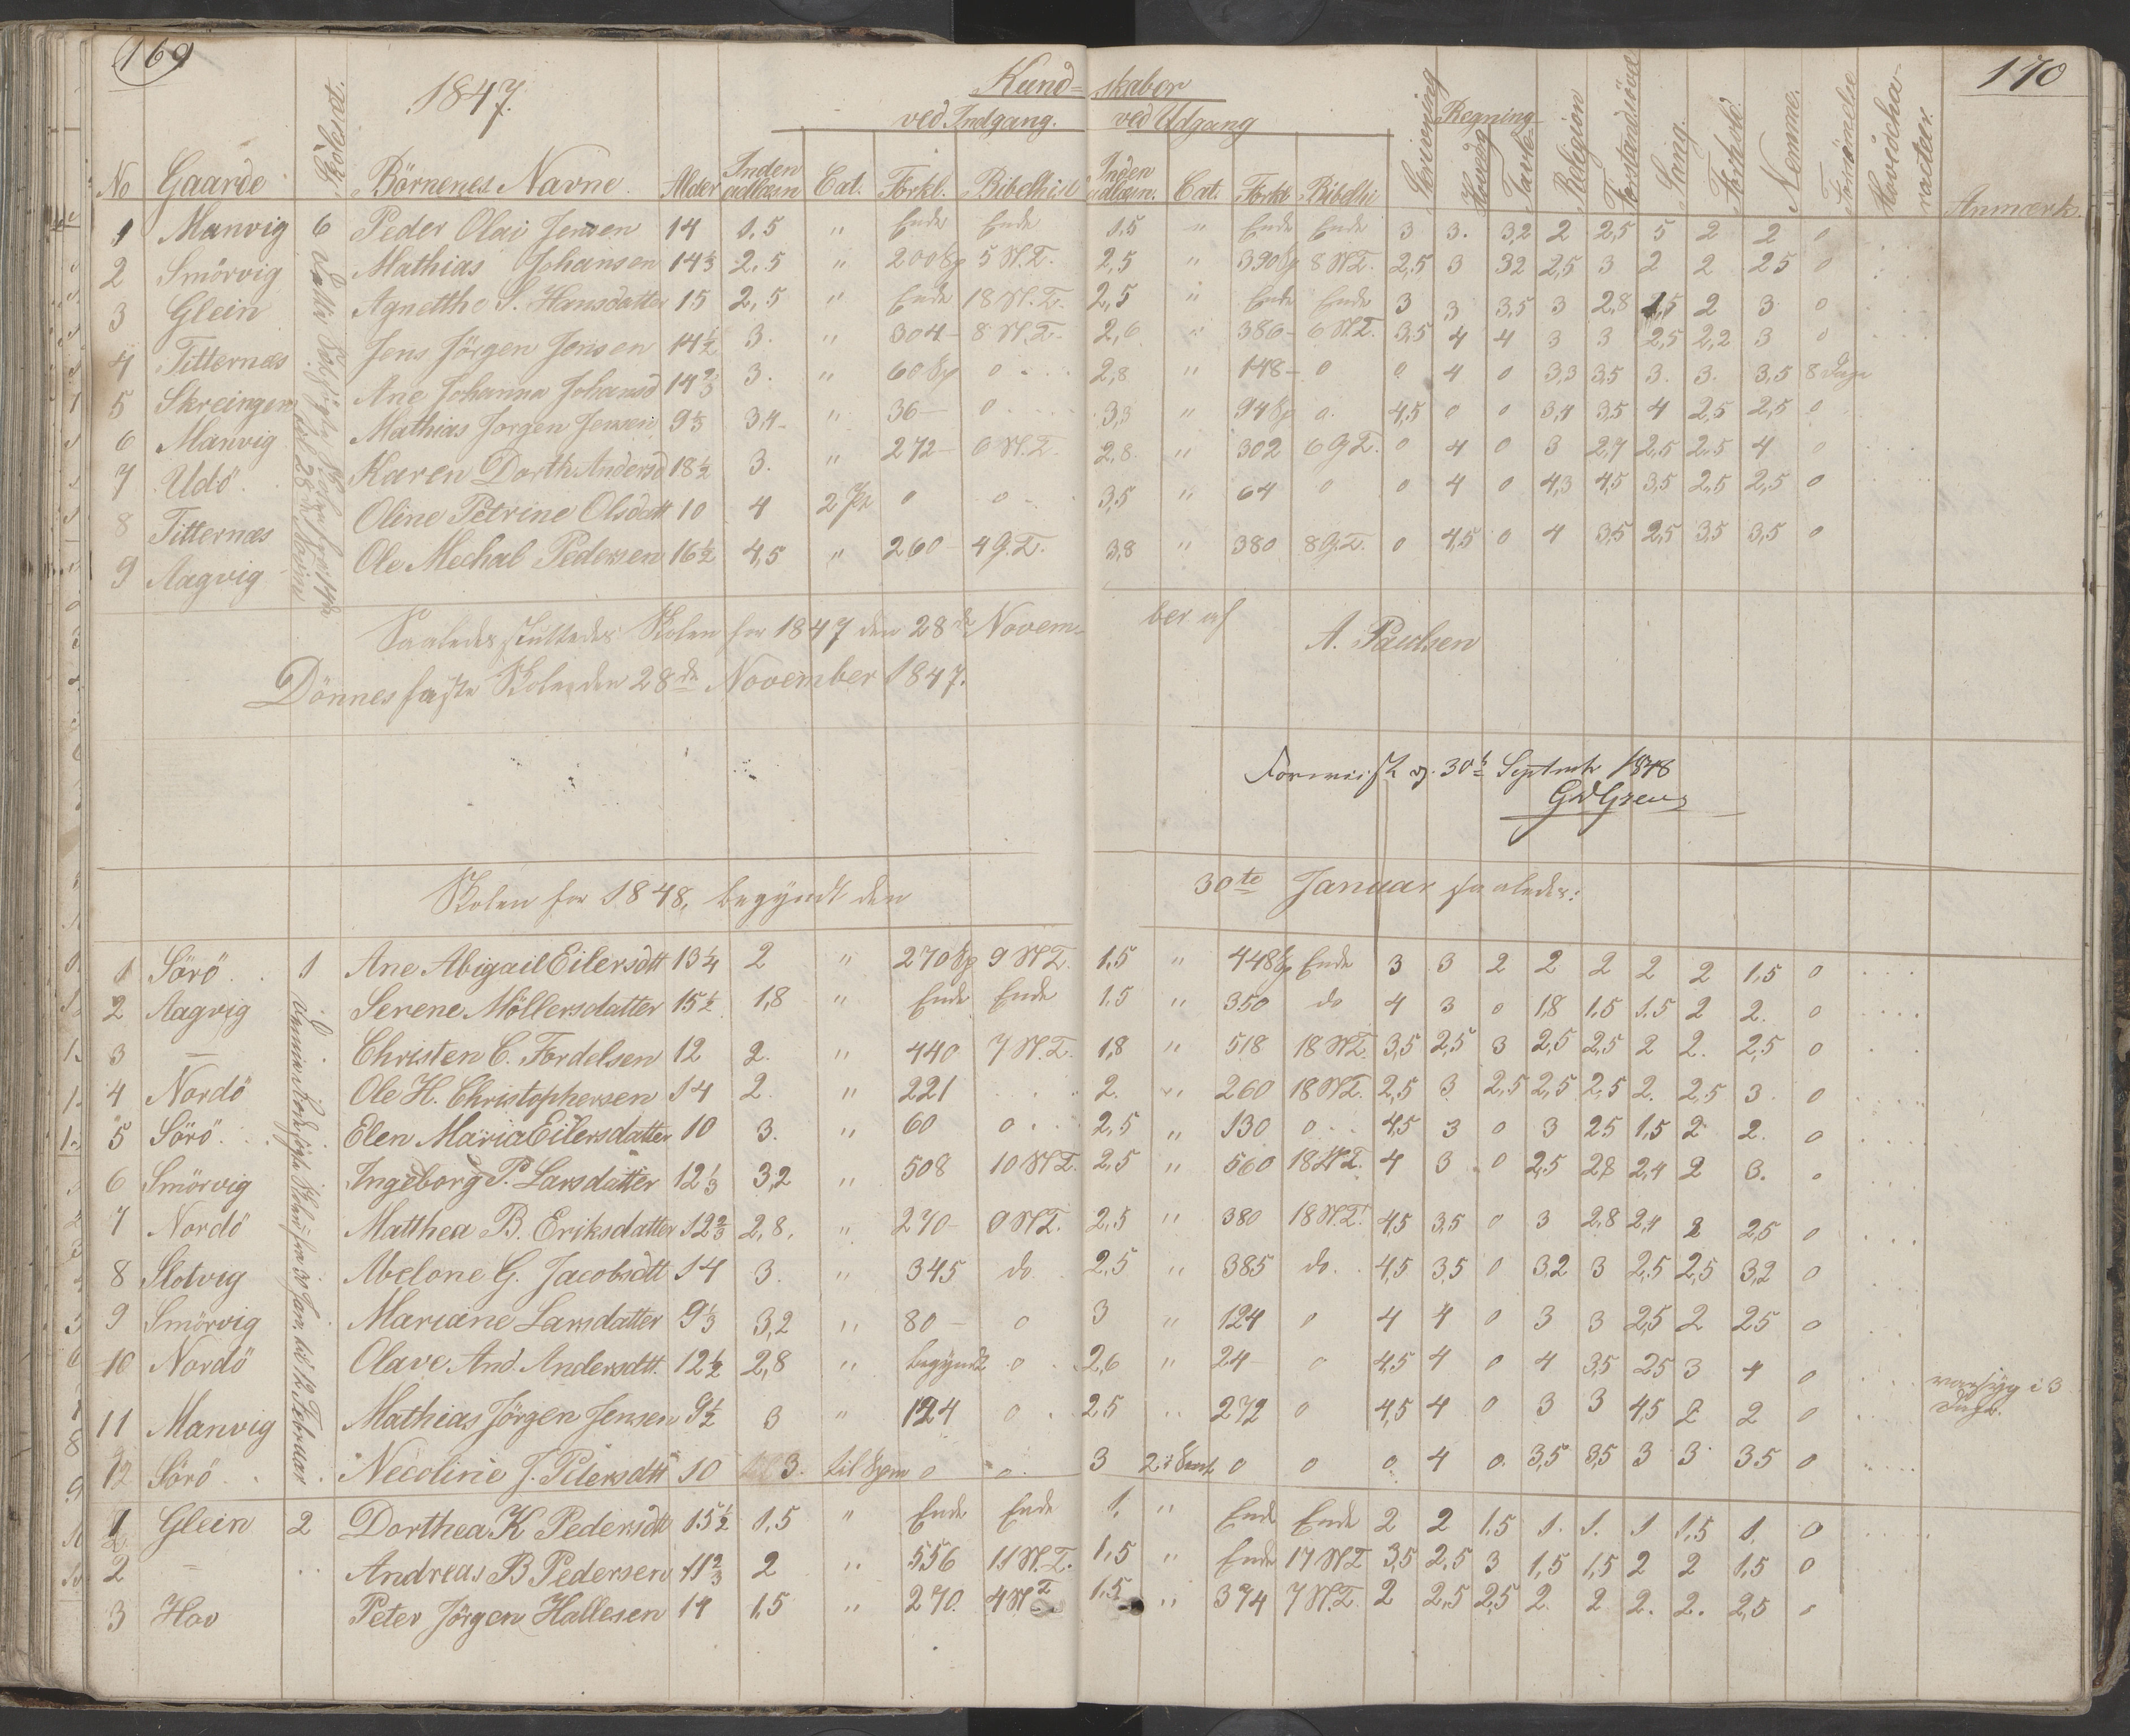 169
170
1847.
Kund= skaber
ved Indgang. ved Udgang
No Gaarde Börnenes Navne. Alder Inden adlæsn Cat. Forkl. Bibelhist Inden adlæsn. Cat. Forkl Bibelhi Skrivning Regning Hoved Tavle Religion Forstandsöve Sang. Forhold. Nemme. Forsömelse Hovedcha- racteer. Anmærk.
1 Manvig 6 Peder Olai Jensen 14 1.5 " Ende Ende 1.5 " Ende Ende 3 3. 3,2 2 2,5 5 2 2 0
2 Smörvig Mathias Johansen 14⅓ 2.5 " 200 Sp 5 N.T. 2,5 " 390 Sp 8 N.T. 2,5 3 32 2,5 3 2 2 25 0
3 Glein Agnethe S. Hansdatter 15 2,5 " Ende 18 N.T. 2,5 " Ende Ende 3 3 3,5 3 2,8 2,5 2 3 0
4 Titternæs Jens Jörgen Jensen 14½ 3. " 304 - 8 N.T. 2,6 " 386 - 6 N.T. 3,5 4 4 3 3 2,5 2,2 3 0
5 Skreingen Ane Johanna Johansd 14⅔ 3. " 60 Sp 0 2,8 " 148 - 0 0 4 0 3,3 3,5 3. 3. 3,5 8 Dage
6 Manvig Mathias Jorgen Jensen 9⅓ 3,4 - " 36 - 0 3,3 " 94 Sp 0. 4,5 0 0 3,4 3,5 4 2,5 2,5 0
7 Udö Karen Dorth. Andersd 18½ 3. " 272 - 6 N.T. 2,8. " 302 6 G.T. 0 4 0 3 2,7 2,5 2.5 4 0
8 Titternæs Oline Petrine Olsdatt 10 4 0 0 3,5 " 64 0 0 4 0 4,3 4,5 3,5 2,5 2,5 0
9 Aagvig Ole Mechal Pedersen 16½ 4,5 " 260 4 G.T. 3,8 " 380 8 G.T. 0 4,5 0 4 3,5 2,5 3,5 3,5 0
Saaledes sluttedes Skolen for 1847 den 28de Novem- ber af A. Paulsen
Dönnes faste Skole den 28de November 1847.
30te Septembr 1848
Skolen for 1848, begyndt den 30te Januar saaledes:
1 Sörö 1 Ane Abigail Eilersdtt 13¼ 2 " 270 Sp 9 N.T. 1,5 " 448 Sp Ende 3 3 2 2 2 2 2 1,5 0
2 Aagvig Serene Möllersdatter 15½ 1,8 " Ende Ende 1.5 " 350 do 4 3 0 1,8 1,5 1.5 2 2. 0
3 — Christen C. Fordelsen 12 2. " 440 7 N.T. 1,8 " 518 18 N.T. 3,5 2,5 3 2,5 2,5 2 2. 2,5 0
4 Nordö Ole H. Christophersen 14 2. " 221 2. " 260 18 N.T. 2,5 3 2,5 2,5 2,5 2. 2,5 3. 0
5 Sörö Elen Maria Eilersdatter 10 3. " 60 0 2,5 " 130 0 4,5 3 0 3 25 1,5 2 2. 0
6 Smörvig Ingeborg P. Larsdatter 12⅓ 3,2 " 508 10 N.T. 2,5 " 560 18 N.T. 4 3 0 2,5 2,8 2,4 2 3. 0
7 Nordö Matthea B. Eriksdatter 12⅔ 2,8. " 270 - 9 N.T. 2,5 " 380 18 N.T. 4,5 3,5 0 3 2,8 2,4 2 2,5 0
8 Slotvig Abelone G. Jacobsdtt 14 3. " 345 do 2,5 " 385 do. 4,5 3,5 0 3,2 3 2,5 2,5 3,2 0
9 Smörvig Mariane Larsdatter 9⅓ 3,2 " 80 - 0 3 " 124 0 4 4 0 3 3 2,5 2 25 0
10 Nordö Olave And. Andersdtt. 12½ 2,8 " begyndt 0 2,6 " 24 - 0 4,5 4 0 4 3,5 25 3 4 0
11 Manvig Mathias Jörgen Jensen 9½ 3 " 124 0 2,5 " 272 0 4,5 4 0 3 3 4,5 2 2 0 var syg i 3 Dage.
12 Sörö Necoline J. Petersdtt 10 3. 0 0. 3 0 0 0 4 0. 3,5 3,5 3 3 35 0
1 Glein 2 Dorthea K Pedersdtt 15½ 1,5 " Ende Ende 1. " Ende Ende 2 2 1,5 1. 1. 1 1.5 1. 0
2 — Andreas B Pedersen 11⅔ 2 " 556 11 N.T. 1,5 " Ende 17 N.T 3,5 2,5 3 1,5 1,5 2 2 1,5 0
3 Hov Peter Jörgen Hallesen 14 1,5 " 270. 4 N.T 1,5 " 374 7 N.T. 2 2,5 2,5 2. 2 2. 2. 2,5 0